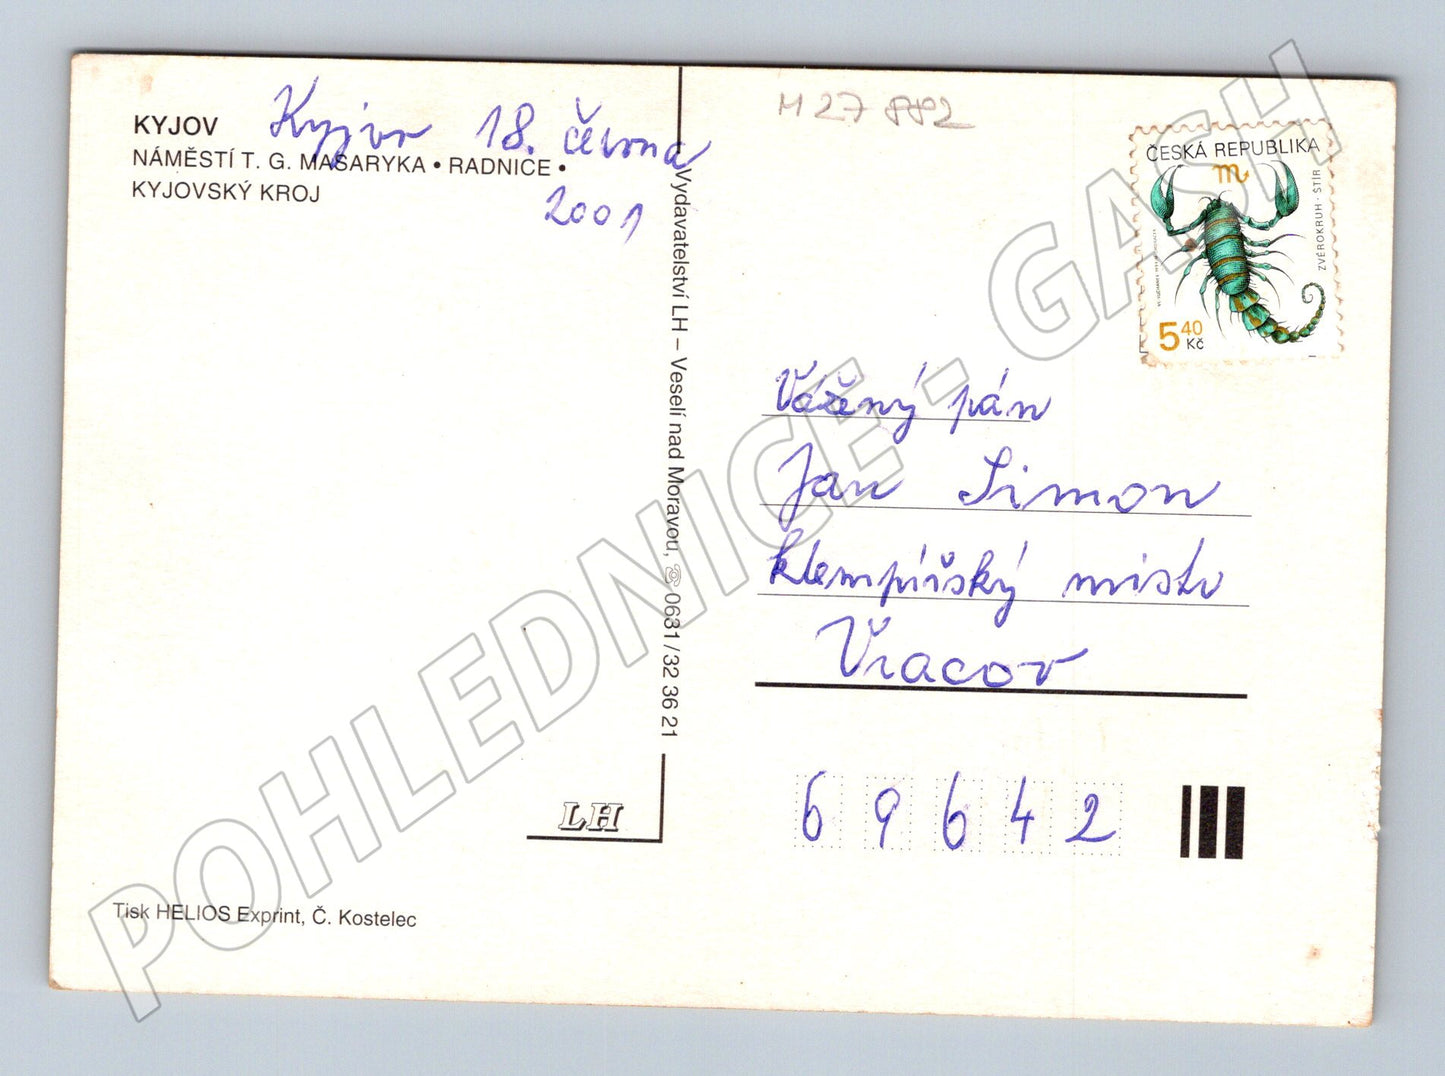 KYJOV
NÁMĚSTÍ T. G. MASARYKA • RADNICE •
KYJOVSKÝ KROJ
Kyjov 18. června
2001
Vydavatelství LH – Veselí nad Moravou, ☎ 0631/32 36 21
LH
Tisk HELIOS Exprint, Č. Kostelec
H27882
ČESKÁ REPUBLIKA
ZVĚROKRUH · ŠTÍR
5 40 Kč
Vážený pán
Jan Simon
klempířský mistr
Vracov
69642
POHLEDNICE - GASH